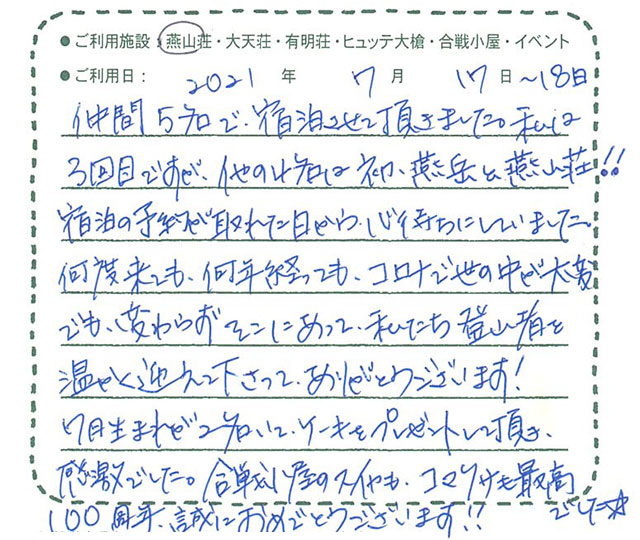 ●ご利用施設：燕山荘・大天荘・有明荘・ヒュッテ大槍・合戦小屋・イベント
●ご利用日： 2021 年 7 月 17 日 ～18日
仲間5名で、宿泊させて頂きました。私は
3回目ですが、他の4名は初、燕岳と燕山荘!!
宿泊の予約が取れた日から、心待ちにしていました。
何度来ても、何年経っても、コロナで世の中が大変
でも、変わらずそこにあって、私たち登山者を
温かく迎えて下さって、ありがとうございます!
7月生まれが2名いて、ケーキをプレゼントして頂き、
感激でした。合戦小屋のスイカも、コマクサも最高
でした☆
100周年、誠におめでとうございます!!